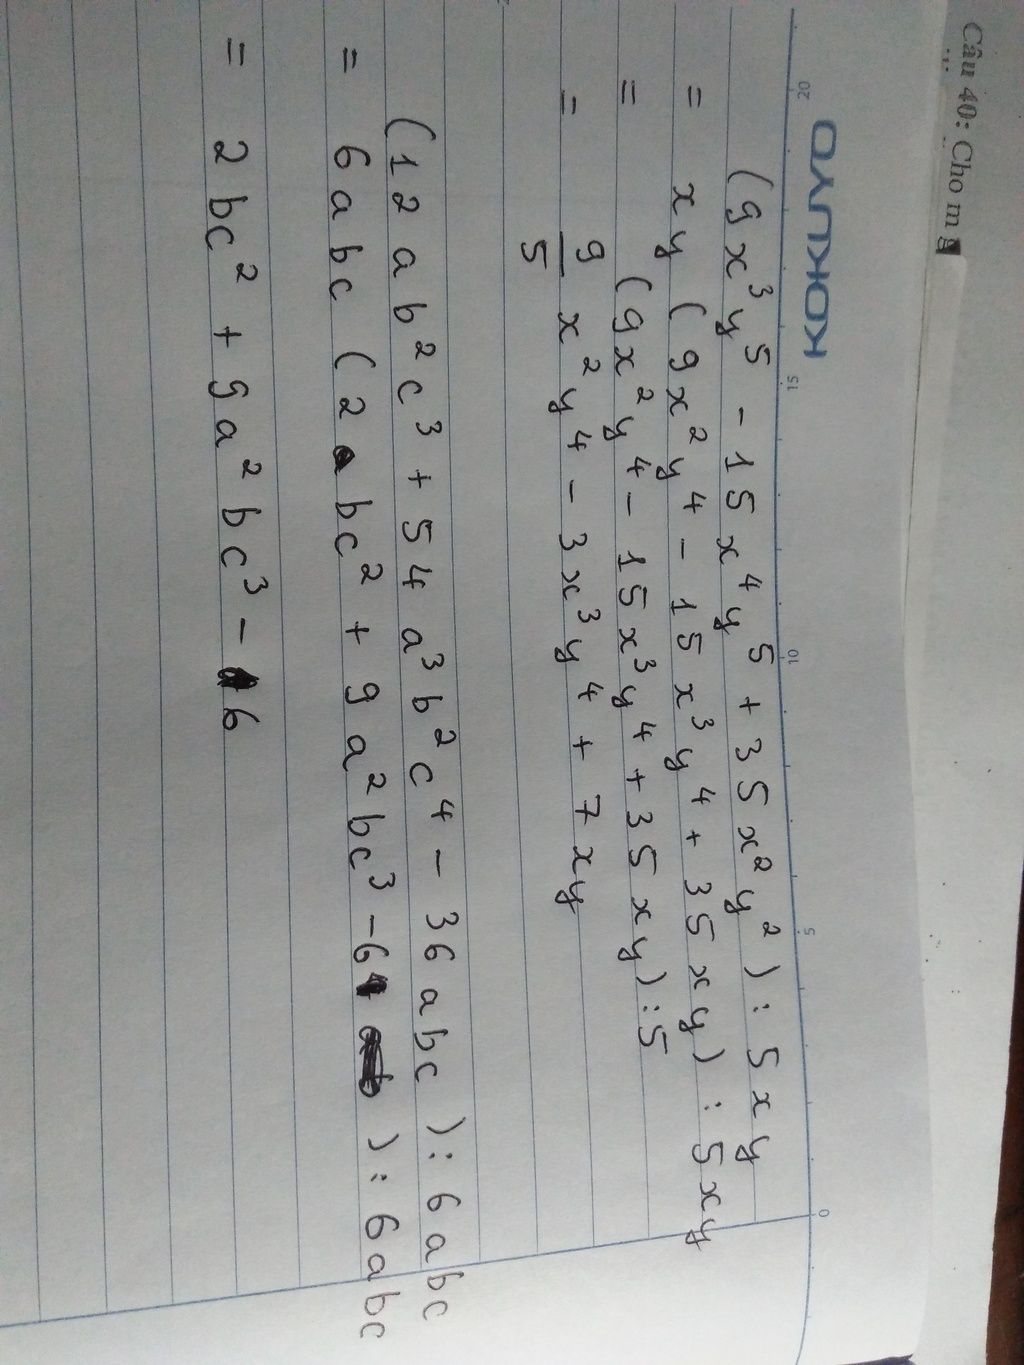 Câu 40: Cho m
KOKUYO
20 15 10 5 0
(9x³y⁵ - 15x⁴y⁵ + 35x²y²) : 5xy
= xy (9x²y⁴ - 15x³y⁴ + 35xy) : 5xy
= (9x²y⁴ - 15x³y⁴ + 35xy) : 5
= 9/5 x²y⁴ - 3x³y⁴ + 7xy
(12ab²c³ + 54a³b²c⁴ - 36abc) : 6abc
= 6abc (2bc² + 9a²bc³ - 6) : 6abc
= 2bc² + 9a²bc³ - 6